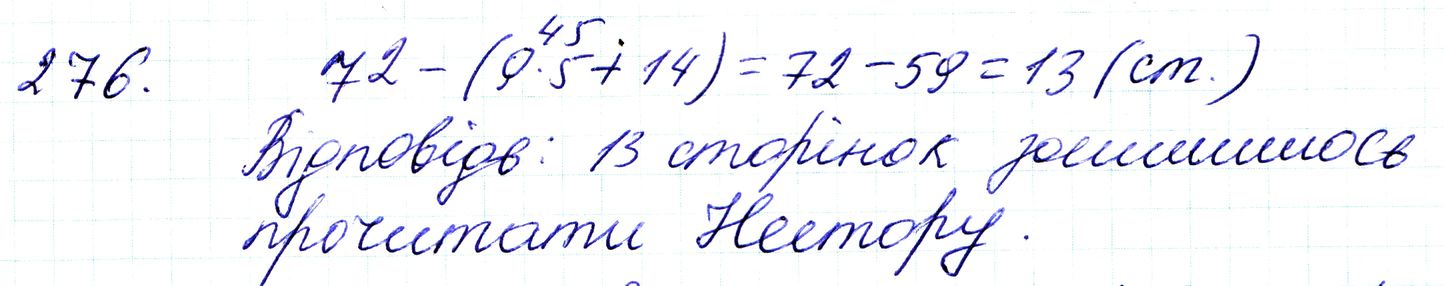 276. 72 - (9·5 + 14) = 72 - 59 = 13 (ст.)
45
Відповідь: 13 сторінок залишилось
прочитати Нестору.